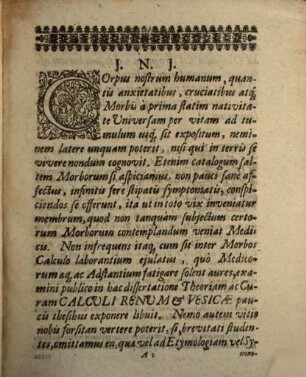 J. N. J.
COrpus nostrum humanum, quan-
tis anxietatibus, cruciatibus atq;
Morbis à prima statim nativita-
te Universam per vitam ad tu-
mulum usq; sit expositum, nemi-
nem latere unquam poterit, nisi qui in terris se
vivere nondum cognovit. Etenim catalogum sal-
tem Morborum si aspiciamus, non pauci sane af-
fectus, infinitis fere stipati symptomatis, conspi-
ciendos se offerunt, ita ut in toto vix inveniatur
membrum, quod non tanquam subjectum certo-
rum Morborum contemplandum veniat Medi-
cis. Non infrequens itaq; cum sit inter Morbos
Calculo laborantium ejulatus, quô Medico-
rum aq; ac Adstantium fatigare solent aures, exa-
mini publico in hac dissertatione Theoriam ac Cu-
ram CALCULI RENUM & VESICÆ pau-
cis thesibus exponere libuit. Nemo autem vitio
nobis forsitan vertere poterit, si, brevitati studen-
tes, omittamus ea, quæ vel ad Etymologiam vel Sy-
A 2